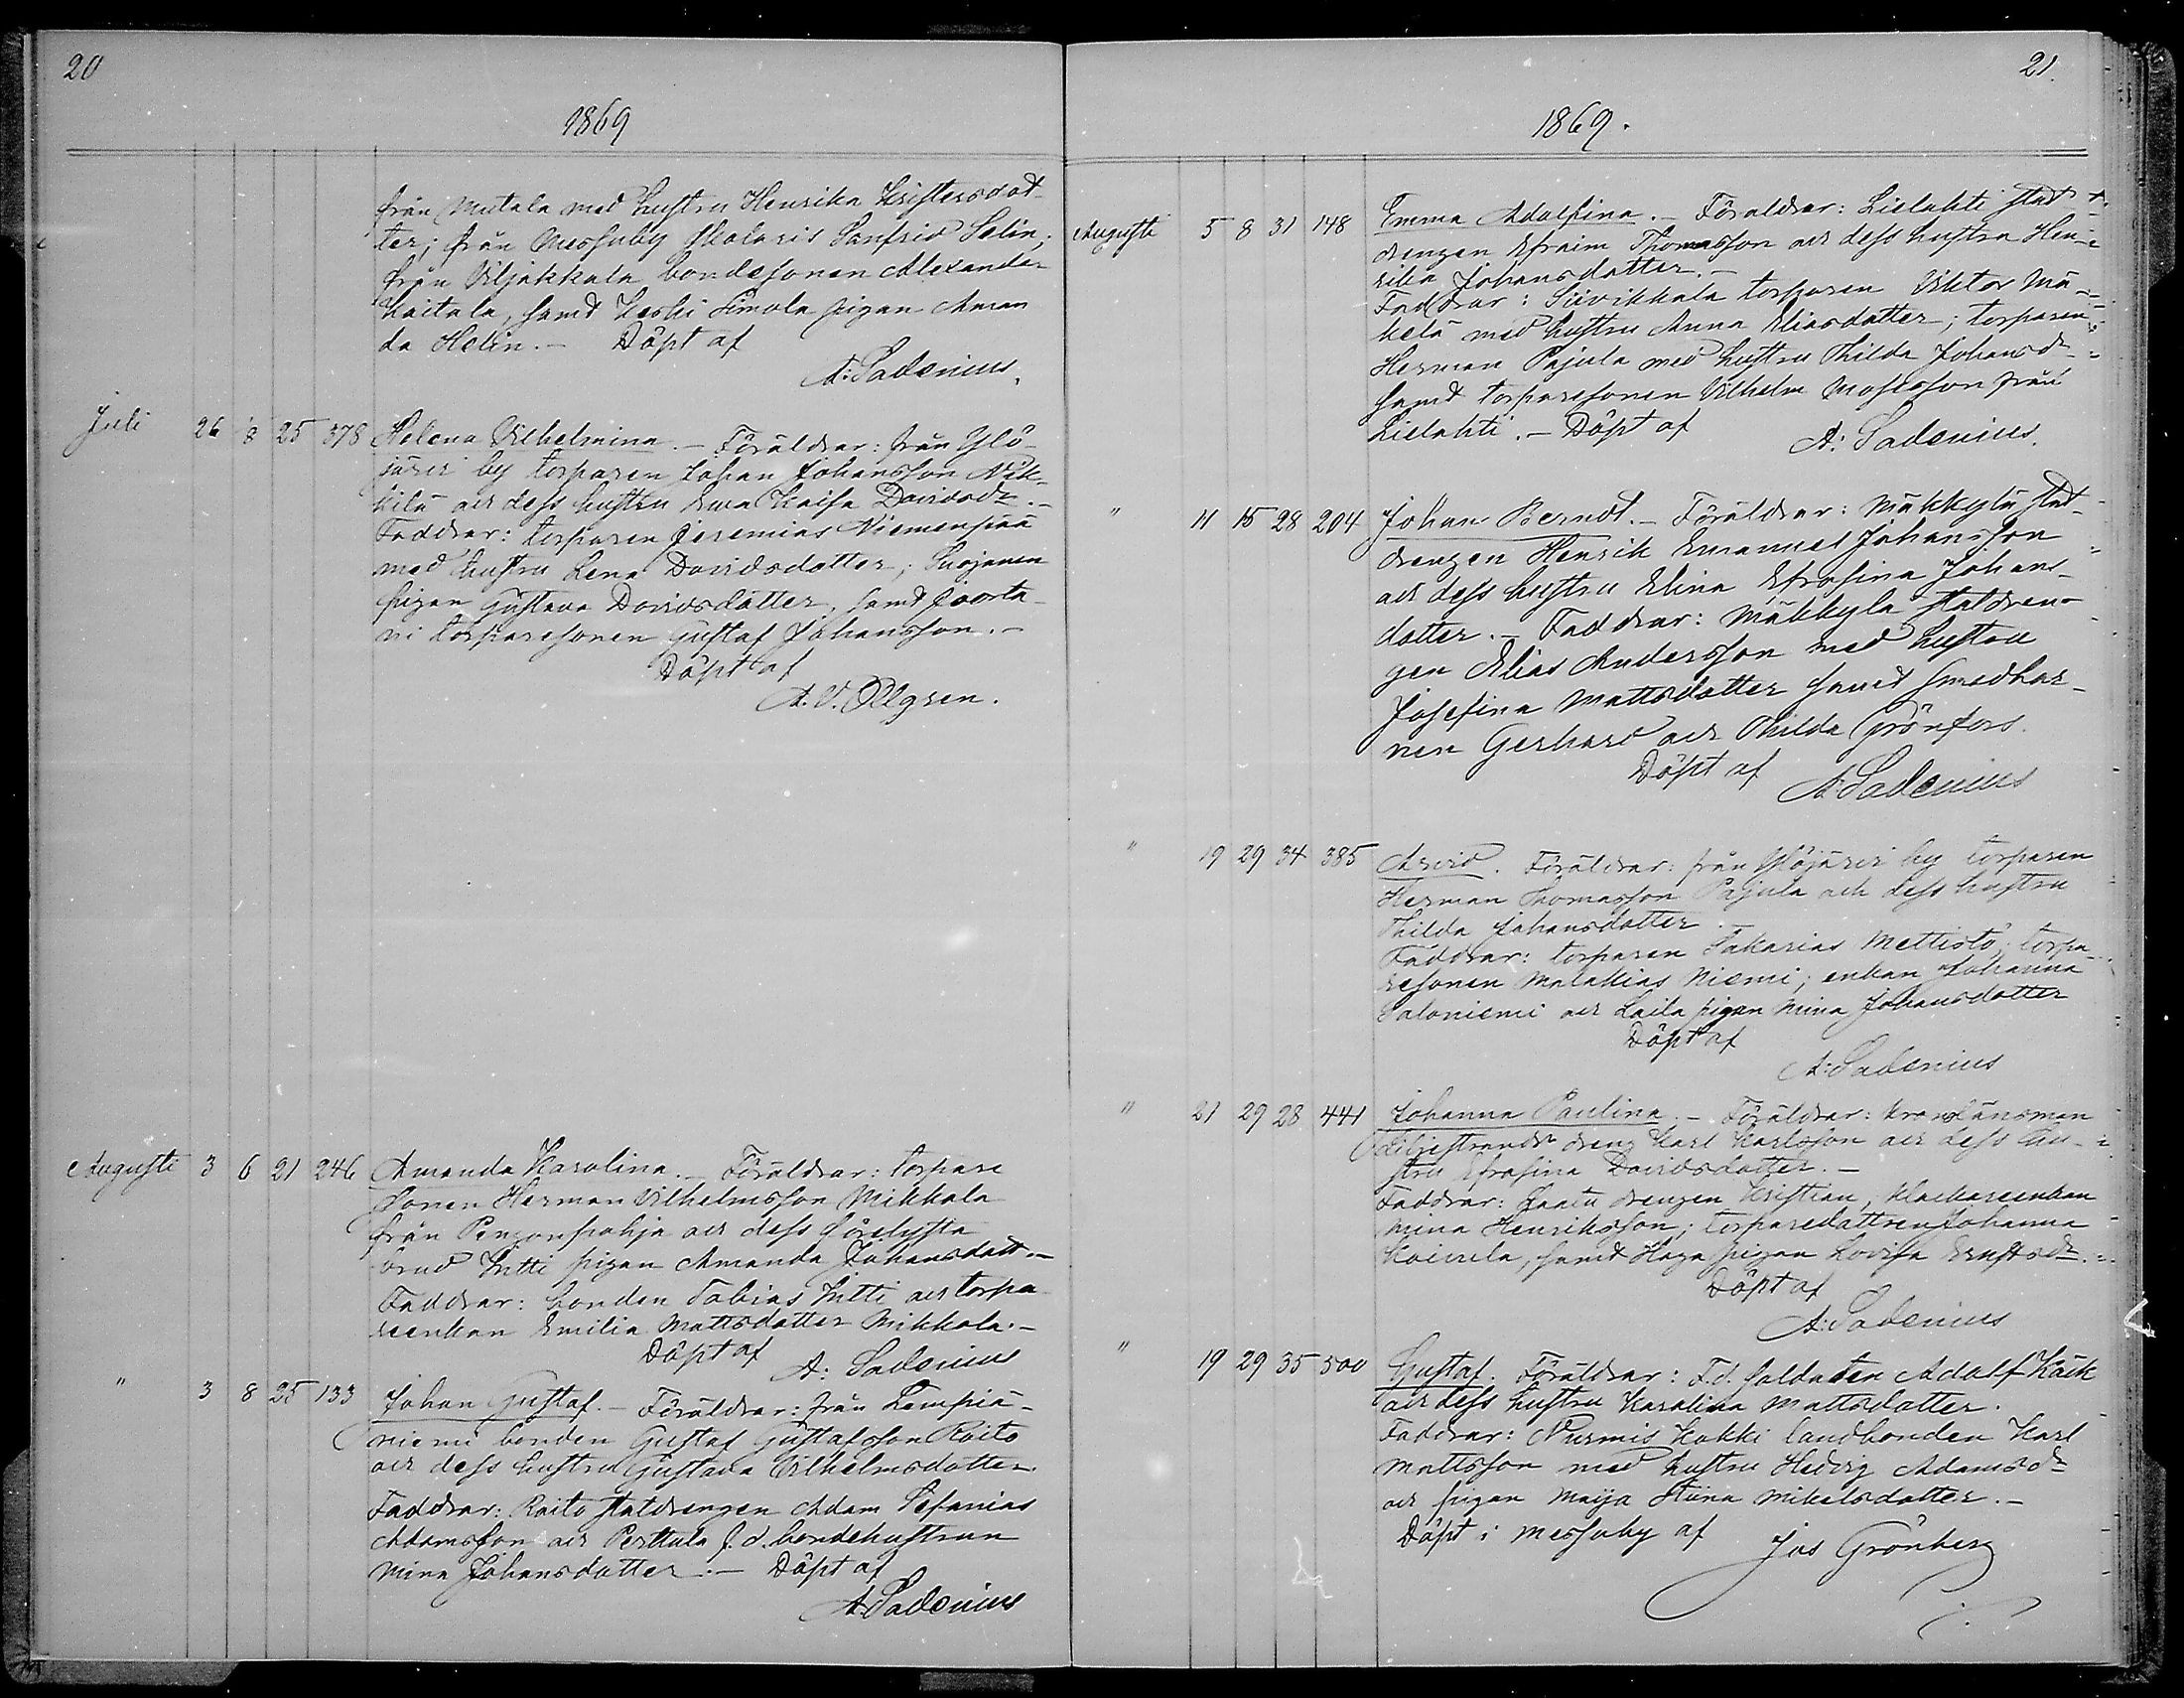 20
1869
från Mutala med hustru Henrika Kristersdot
ter; från Messuby skolaris Sanfrid Selin;
från Viljakkala bondesonen Alexander
Haitala, samt Keski Simola pigan Aman
da Helin. - Döpt af
A: Sadenius.
Juli 26 8 25 378 Helena Vilhelmina. - Föräldrar: från Ylö-
järvi by torparen Johan Johansson Nik-
kilä och dess hustru Eva Kaisa Davidsdr. -
Faddrar: torparen Jeremias Niemenpää
med hustru Lena Davidsdotter; Suojanen
pigan Gustava Davidsdotter, samt Joosta-
vi torparesonen Gustaf Johansson. -
Döpt af
A. V. Pelgren.
Augusti 3 6 21 246 Amanda Karolina. - Föräldrar: torpare
sonen Herman Vilhelmsson Mikkala
från Pengonpohja och dess förelysta
brud Yntti pigan Amanda Johansdott. -
Faddrar: bonden Tobias Yntti och torpa
reenkan Emilia Mattsdotter Mikkala. -
Döpt af
A: Sadenius
" 3 8 25 133 Johan Gustaf. - Föräldrar: från Lempiä-
niemi bonden Gustaf Gustafsson Raito
och dess hustru Gustava Vilhelmsdotter.
Faddrar: Raito statdrengen Adam Sefanias
Adamsson och Perttula f. d. bondehustrun
Mina Johansdotter. - Döpt af
A: Sadenius
21.
1869.
Augusti 5 8 31 148 Emma Adolfina. - Föräldrar: Lielahti stat-
drengen Efraim Thomasson och dess hustru Hen-
rika Johansdotter. -
Faddrar: Siivikkala torparen Viktor Mä-
kelä med hustru Anna Eliasdotter; torparen
Herman Pajula med hustru Thilda Johansdr
samt torparesonen Vilhelm Mosesson från
Lielahti. - Döpt af
A: Sadenius.
" 11 15 28 204 Johan Berndt. - Föräldrar: Mäkkylä stat-
drengen Henrik Emanuel Johansson
och dess hustru Elina Efrosina Johans-
dotter. - Faddrar: Mäkkylä statdren-
gen Elias Andersson med hustru
Josefina Mattsdotter samt smedbar-
nen Gerhard och Thilda Grönfors.
Döpt af
A: Sadenius
" 19 29 34 385 Arvid. Föräldrar: från Ylöjärvi by torparen
Herman Thomasson Pajula och dess hustru
Thilda Johansdotter. -
Faddrar: torparen Sakarias Mettistö; torpa-
resonen Malakias Niemi; enkan Johanna
Saloniemi och Laila pigan Mina Johansdotter
Döpt af
A: Sadenius
" 21 29 28 441 Johanna Paulina. - Föräldrar: kronolänsman
Liliestrands dreng Karl Karlsson och dess hu-
stru Efrosina Davidsdotter. -
Faddrar: drengen Kristian, klockareenkan
Mina Henriksson; torparedottren Johanna
Koivula, samt Haga pigan Lovisa Ernstsdr.
Döpt af
A: Sadenius
" 19 29 35 500 Gustaf. Föräldrar: F.d. soldaten Adolf Käck
och dess hustru Karolina Mattsdotter.
Faddrar: Nurmis Kokki landbonden Karl
Mattsson med hustru Hedvig Adamsdr
och pigan Maija Stiina Mikelsdotter. -
Döpt i Messuby af
Jos Grönberg